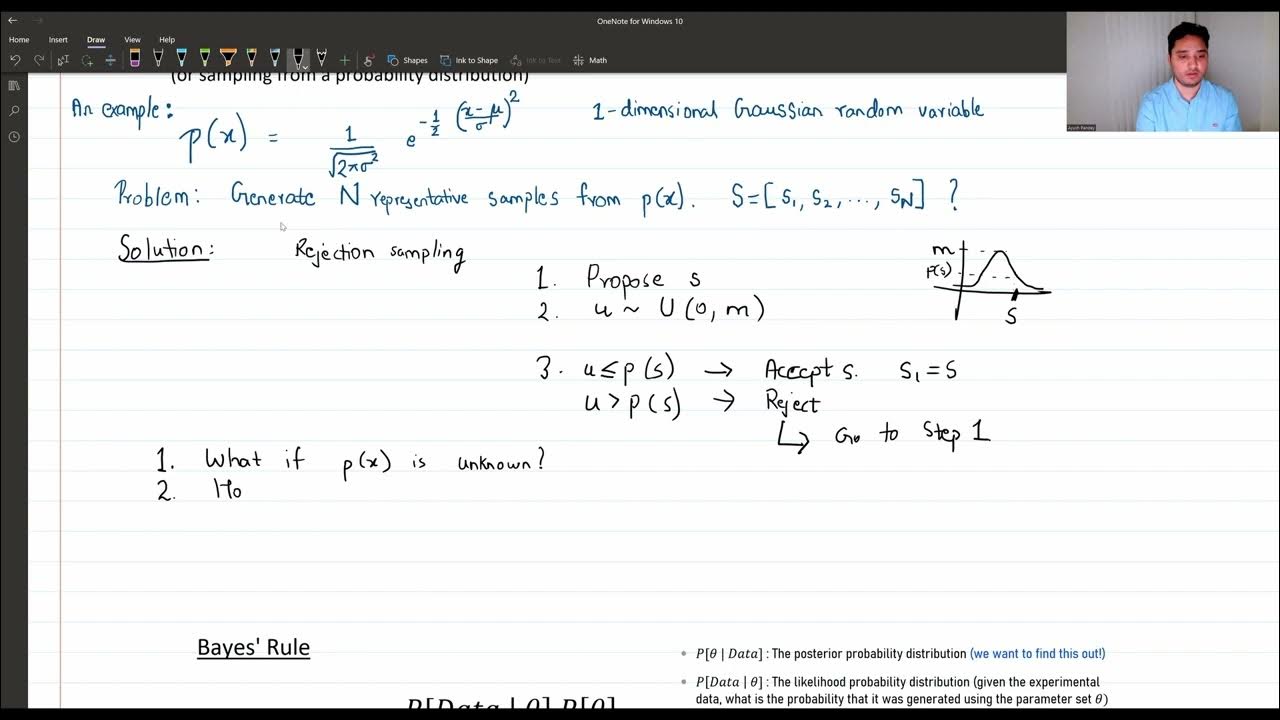 OneNote for Windows 10
Home Insert Draw View Help
Shapes Ink to Shape Ink to Text Math
(or sampling from a probability distribution)
An example: p(x) = 1/√(2πσ²) e^(-1/2 ((x-μ)/σ)²) 1-dimensional Gaussian random variable
Problem: Generate N representative samples from p(x). S=[s₁, s₂, ..., s_N] ?
Solution: Rejection sampling
m
p(s)
s
1. Propose s
2. u ~ U(0, m)
3. u ≤ p(s) → Accept s. s₁ = s
u > p(s) → Reject
↳ Go to Step 1
1. What if p(x) is unknown?
2. Ho
Bayes' Rule
P[Data | θ] P[θ]
• P[θ | Data] : The posterior probability distribution (we want to find this out!)
• P[Data | θ] : The likelihood probability distribution (given the experimental
data, what is the probability that it was generated using the parameter set θ)
Ayush Pandey